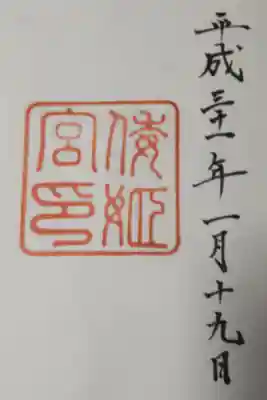 平成三十一年一月十九日
倭姫
宮印